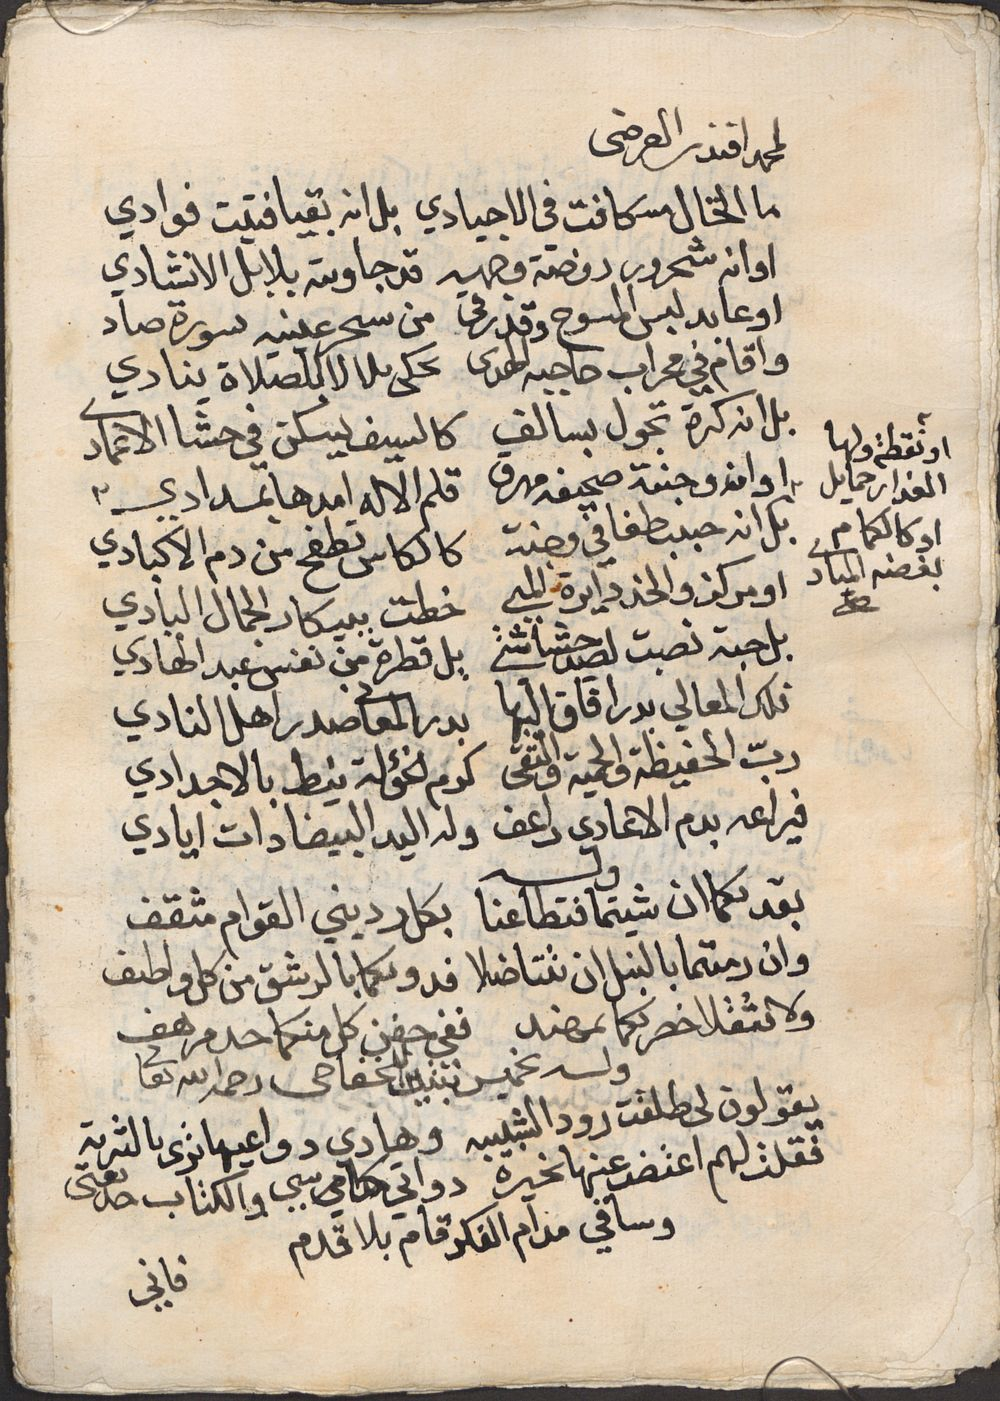 لمحمد افندي العرضي
ما الخال مسكا فت في الاجيادي بل انه بقيا فتيت فوادي
او انه شحرور روضة وجهه قد جاوبته بلابل الانشادي
او عابد لبس المسوح وقد رقى من سحر عينيه سورة صاد
واقام في محراب حاجبه الهدى يحكي بلالا بالصلاة ينادي
بل انه كرة تجول بسالف كالسيف يسكن في حشا الاغمادي
او انه وجنته صحيفه مهرق قلم الاله امدها بمدادي
بل انه حبب طفا في وجنة كالكاس تطفح من دم الاكبادي
او مركز والخد دايرة خطت ببيكار الجمال البادي
بل حبة نصبت لصيد حشاشتي بل قطرة من نفس عبد الهادي
فلك المعالي بدر افاق البها بدر المعالي صدر اهل النادي
ربّ الحفيظة والحمية والتقى كرم الخؤلة نيط بالاجدادي
فيراعه بدم الاعادي راعف وله اليد البيضا ذات ايادي
او نقطة ولها
العذار حمايل
او كالكمام
بغضنه المياد
وله
بقد بكما ان شيتما فتطاعنا بكل رديني القوام مثقف
وان رمتما بالنبل ان تتناضلا فدونكما بالرشق من كل اوطف
ولا تنقلا خصريكما بمهند ففي جفن كل منكما حد مرهف
وله تخميس بيتين للخفاجي رحمه الله تعا
يقولون لي طلقت رود الشبيبه وهادي دواعيها نزى بالتربة
فقلت لهم اعتضت عنها بخيرة دواتي كاسي والكتاب حديقتي
وساقي مدام الفكر قام بلا قدم
فاني